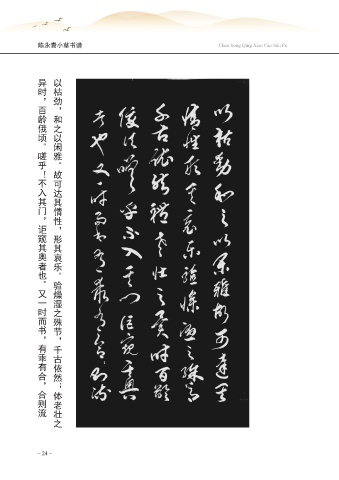 陈永青小草书谱
Chen Yong Qing Xiao Cao Shu Pu
以枯劲,和之以闲雅。故可达其情性,形其哀乐。验燥湿之殊节,千古依然;体老壮之
异时,百龄俄顷。嗟乎!不入其门,讵窥其奥者也。又一时而书,有乖有合,合则流
以枯勁和之以閑雅故可達其
情性形其哀樂驗燥濕之殊節
千古依然體老壯之異時百齡
俄頃嗟乎不入其門詎窺其奧
者也又一時而書有乖有合合則流
- 24 -